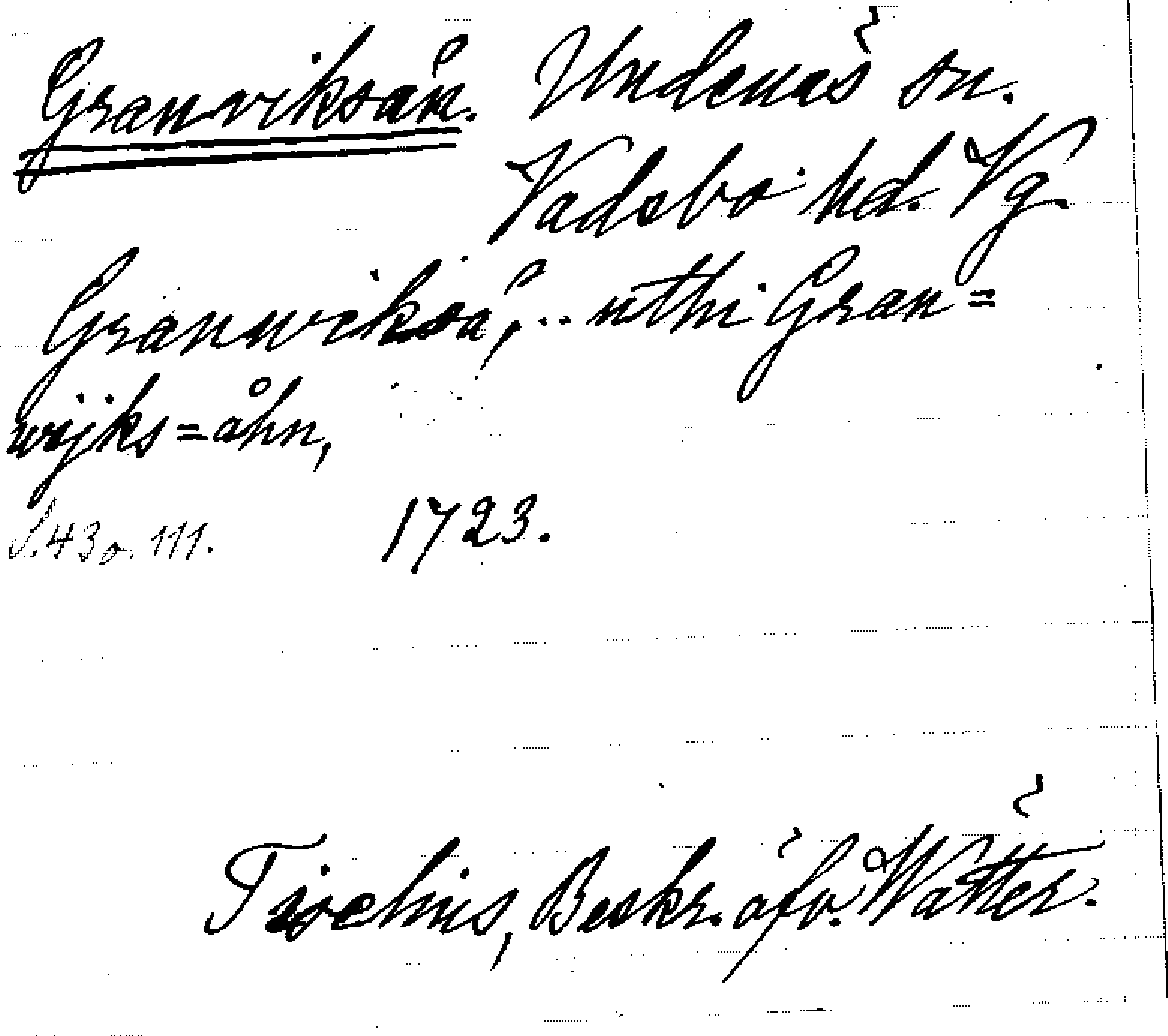 Granviksån. Undenäs sn.
Vadsbo hd. Vg.
Granwikså, .. uthi Gran=
wijks=åhn,
S. 43 o. 111. 1723.
Tiselius, Beskr. öfv. Wätter.